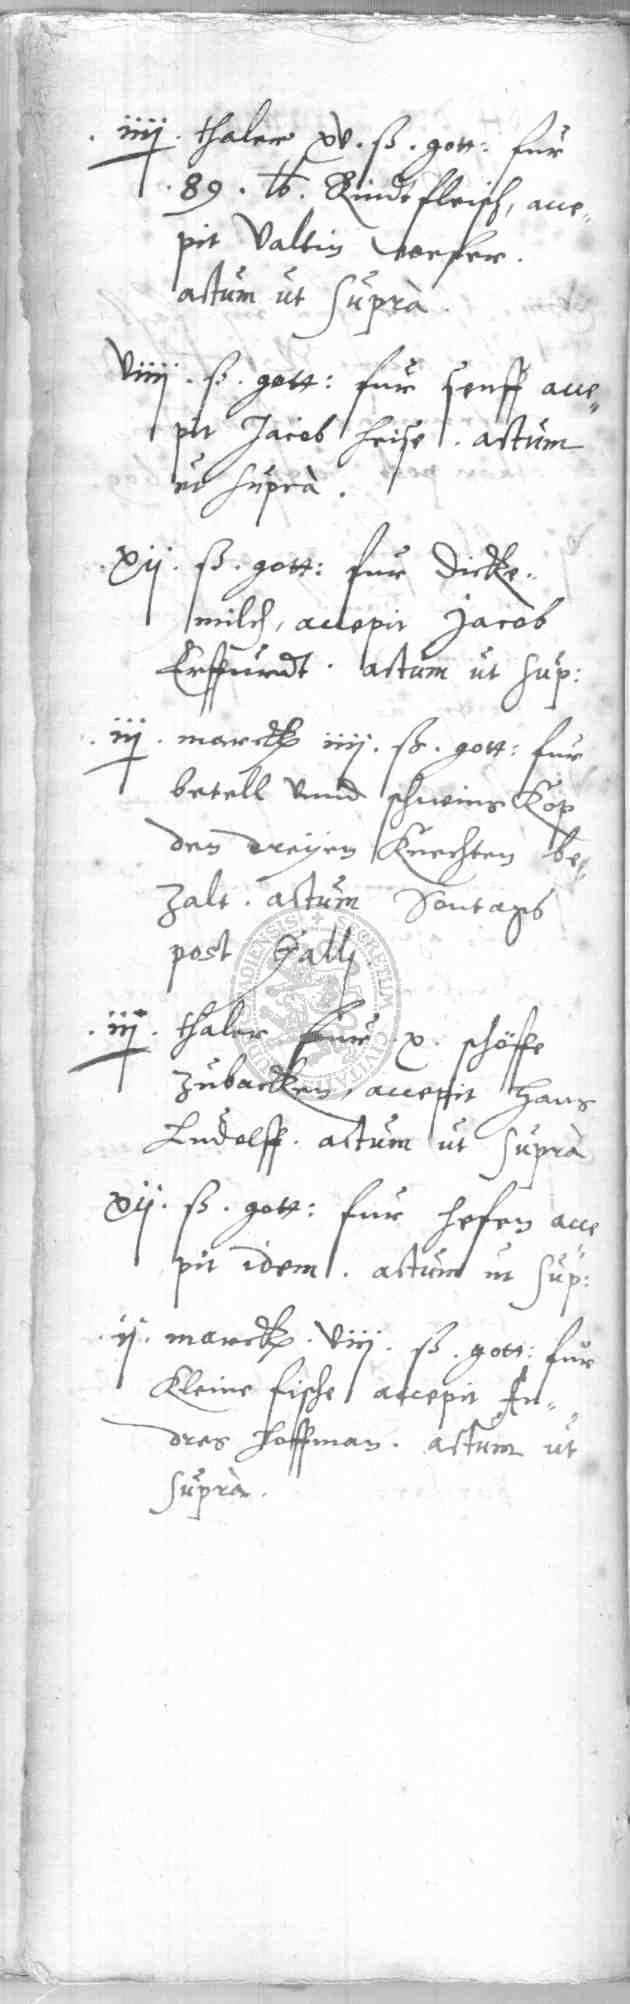 . iiij . thaler xv . ß . gott: für
. 89 . lb . Rindtfleisch, acce„
pit Valtin
actum ut Suprà .
Viiij . ß . gott: für senff acce„
pit Jacob heise . actum
ut suprà .
. xij . ß . gott: für dicke„
milch, accepit Jacob
Erffurdt . actum ut sup:
. iij . marck iiij . ß . gott: für
vnnd schweins Köp
den dreyen Knechten be„
zalt . actum Sontags
post Galli .
. iij . thaler für . x . schöffe
zubacken, accepit Hans
Ludolff . actum ut Suprà
xij . ß . gott: für hefen acce„
pit idem . actum ut sup:
. ij . marck . Viij . ß . gott: für
Kleine fische accepit An„
dres Hoffman . actum ut
suprà .
SECRETUM CIVITATIS